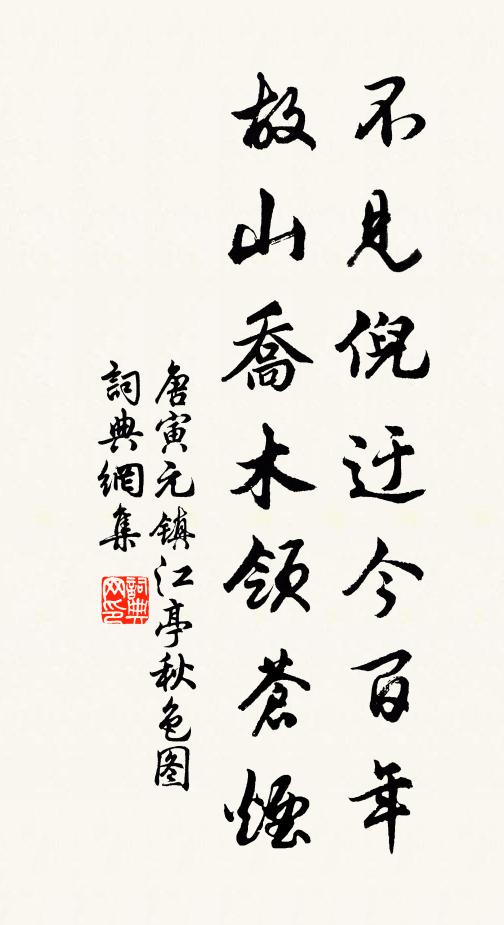 不見倪迂今百年
故山喬木領蒼煙
唐寅元镇江亭秋色图
詞典網集
詞典网印